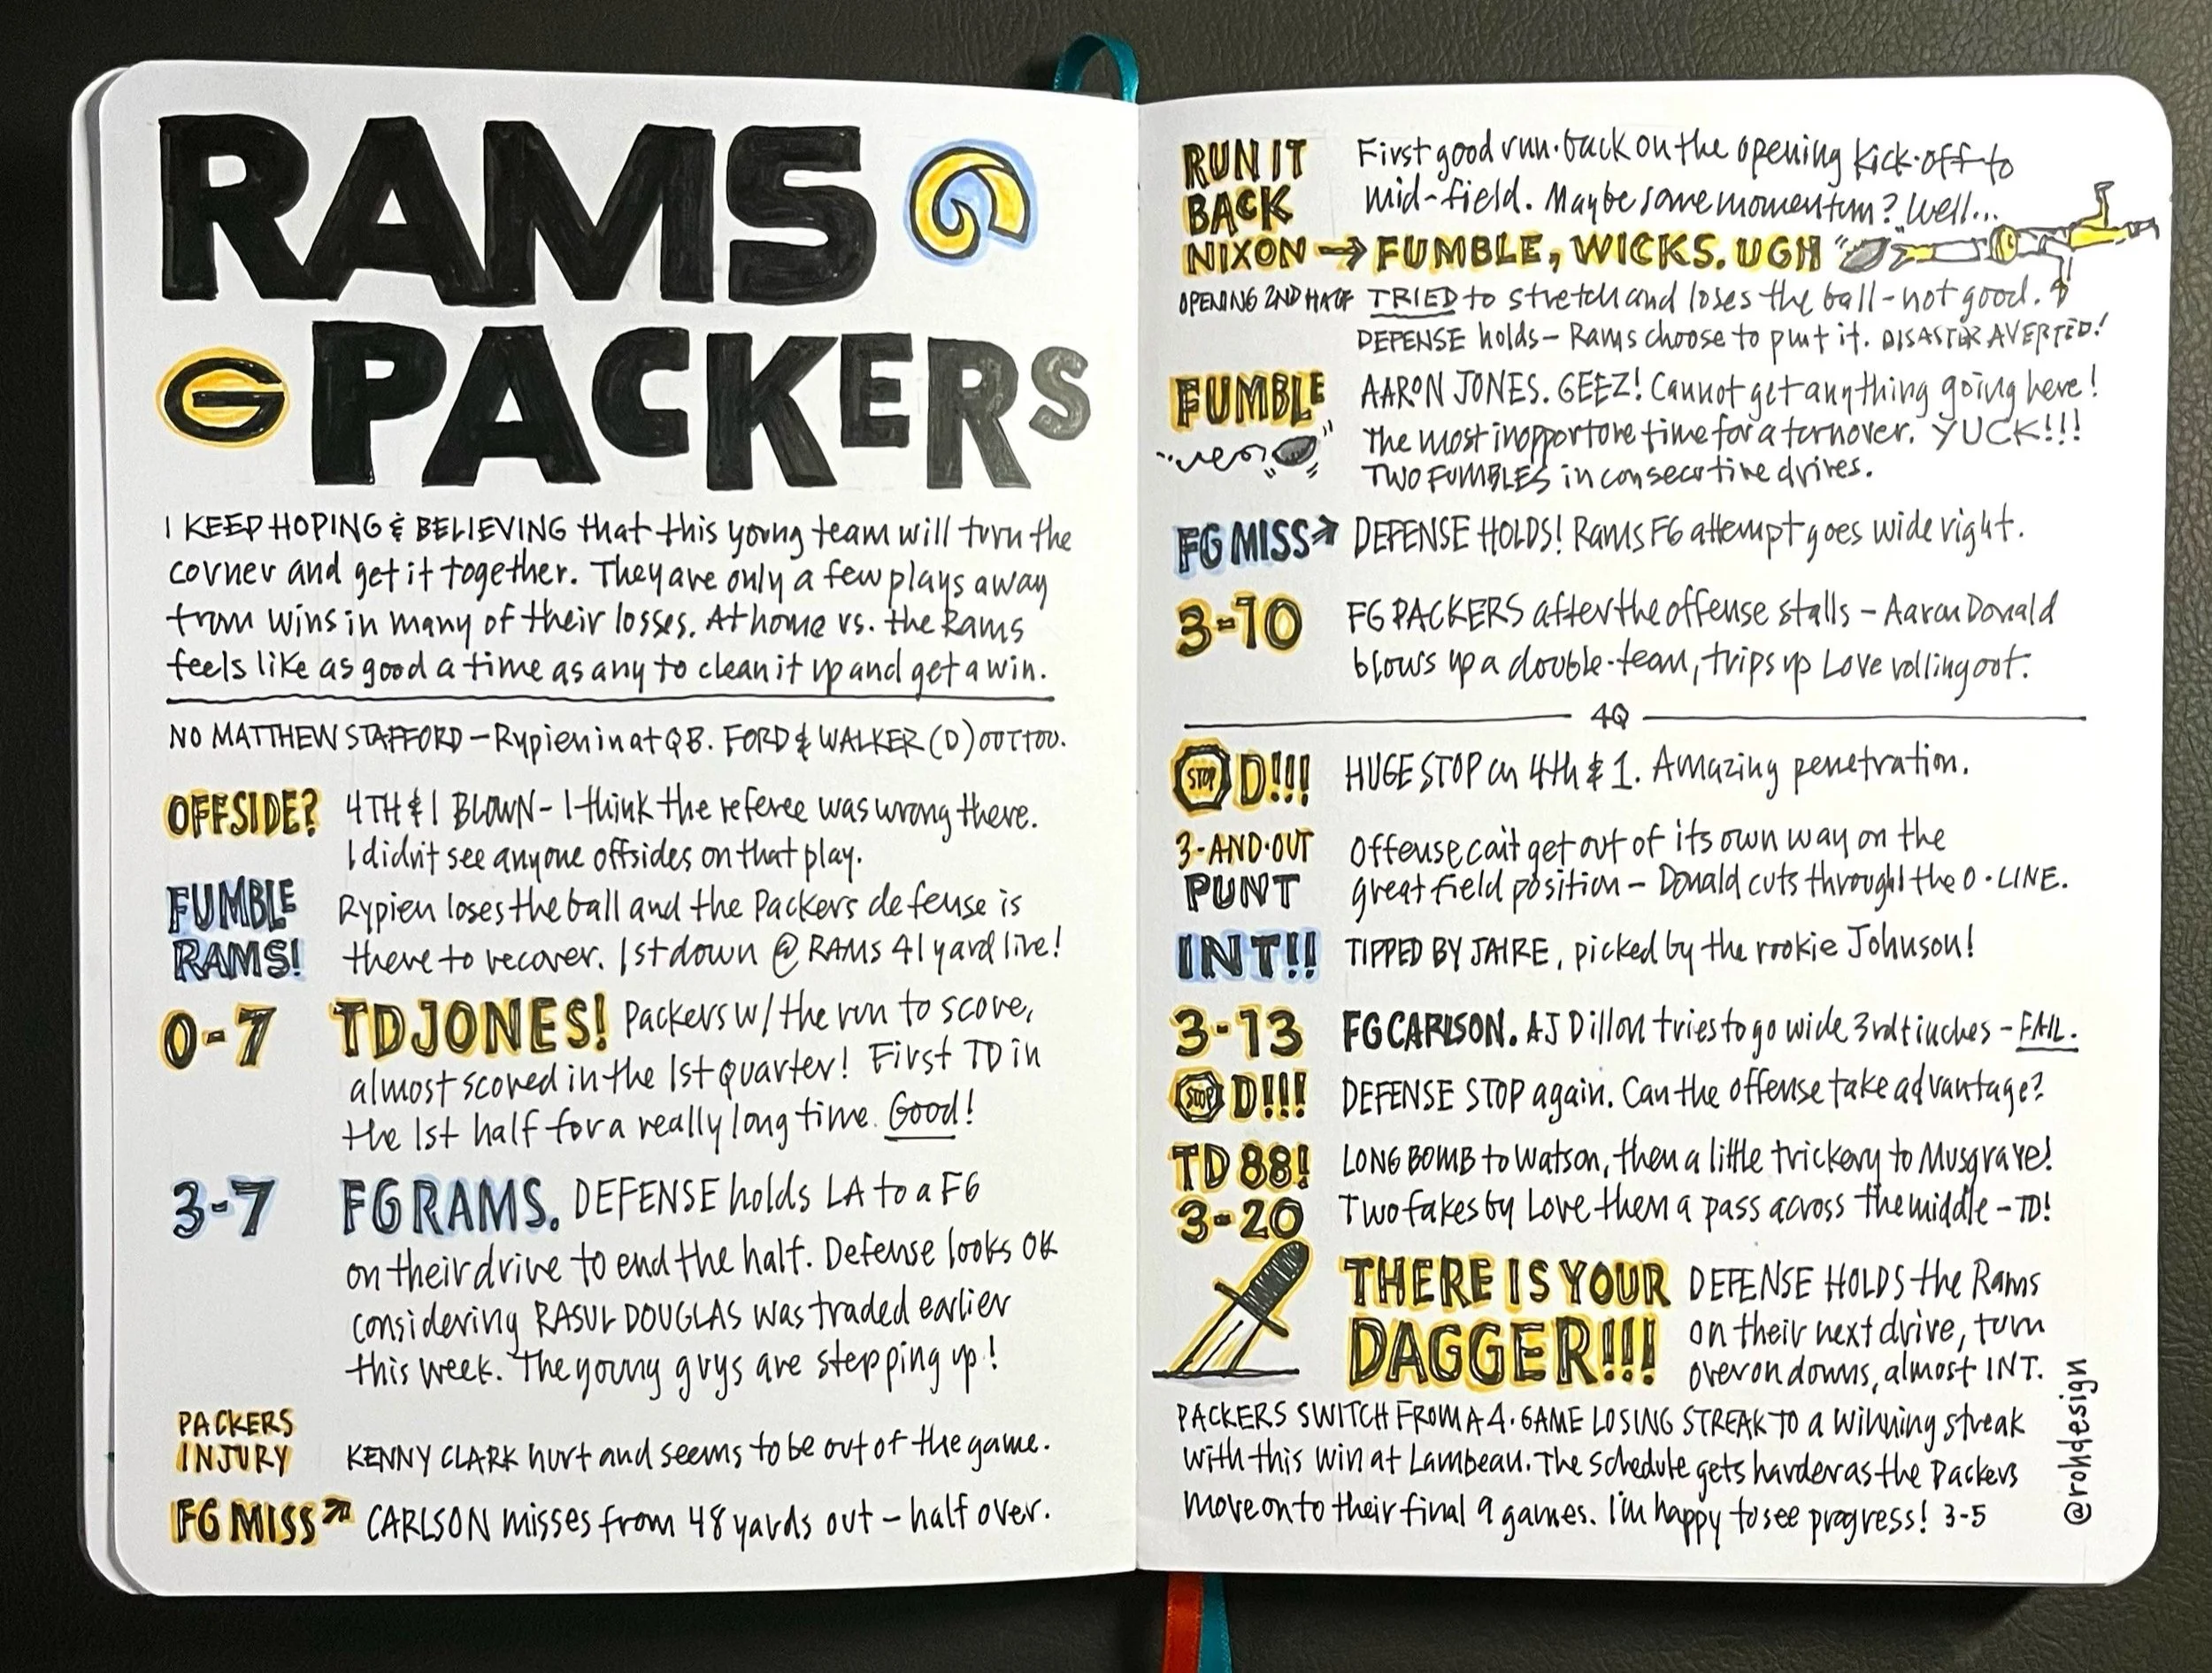 RAMS
G PACKERS
I KEEP HOPING & BELIEVING that this young team will turn the
corner and get it together. They are only a few plays away
from wins in many of their losses. At home vs. the Rams
feels like as good a time as any to clean it up and get a win.
NO MATTHEW STAFFORD – Rypien in at QB. FORD & WALKER (D) OUT TOO.
OFFSIDE? 4TH & 1 BLOWN – I think the referee was wrong there.
I didn't see anyone offsides on that play.
FUMBLE RAMS! Rypien loses the ball and the Packers defense is
there to recover. 1st down @ RAMS 41 yard line!
0-7 TD JONES! Packers w/ the run to score,
almost scored in the 1st quarter! First TD in
the 1st half for a really long time. Good!
3-7 FG RAMS. DEFENSE holds LA to a FG
on their drive to end the half. Defense looks OK
considering RASUL DOUGLAS was traded earlier
this week. The young guys are stepping up!
PACKERS
INJURY KENNY CLARK hurt and seems to be out of the game.
FG MISS CARLSON misses from 48 yards out – half over.
RUN IT
BACK
NIXON
OPENING 2ND HALF
First good run-back on the opening kick-off to
mid-field. Maybe some momentum? Well...
→ FUMBLE, WICKS. UGH
TRIED to stretch and loses the ball – not good.
DEFENSE holds – Rams choose to punt it. DISASTER AVERTED!
FUMBLE AARON JONES. GEEZ! Cannot get anything going here!
The most inopportune time for a turnover. YUCK!!!
TWO FUMBLES in consecutive drives.
FG MISS DEFENSE HOLDS! Rams FG attempt goes wide right.
3-10 FG PACKERS after the offense stalls – Aaron Donald
blows up a double-team, trips up Love rolling out.
4Q
STOP D!!! HUGE STOP on 4th & 1. Amazing penetration.
3-AND-OUT
PUNT
Offense can't get out of its own way on the
great field position – Donald cuts throught the O-LINE.
INT!! TIPPED BY JAIRE, picked by the rookie Johnson!
3-13 FG CARLSON. AJ Dillon tries to go wide 3rd + inches – FAIL.
STOP D!!! DEFENSE STOP again. Can the offense take advantage?
TD 88! LONG BOMB to Watson, then a little trickery to Musgrave!
3-20 Two fakes by Love them a pass across the middle – TD!
THERE IS YOUR
DAGGER!!!
DEFENSE HOLDS the Rams
on their next drive, turn
over on downs, almost INT.
PACKERS SWITCH FROM A 4-GAME LOSING STREAK TO a winning streak
with this win at Lambeau. The schedule gets harder as the Packers
move on to their final 9 games. I'm happy to see progress! 3-5
@rohdesign